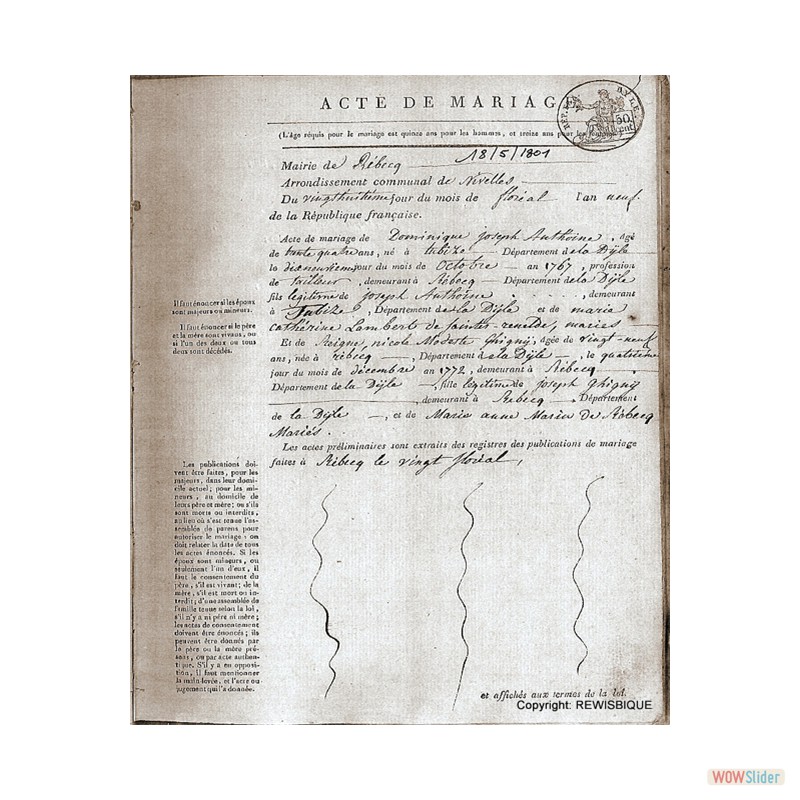 ACTE DE MARIAG
RÉP. FRA. DYLE.
50
Cent
(L'âge réquis pour le mariage est quinze ans pour les hommes, et treize ans pour les femmes.)
18/5/1801
Mairie de Rébecq
Arrondissement communal de Nivelles
Du vingthuitième jour du mois de floréal l'an neuf
de la République française.
Acte de mariage de Dominique Joseph Anthoine, agé
de trente quatre ans, né à tubize Département de la Dijle
la dixneuvieme jour du mois de Octobre an 1767, profession
de tailleur, demeurant à Rébecq Département de la Dijle
fils legitime de joseph Anthoine, demeurant
à Tubize, Département de la Dijle et de maria
cathérine Lambert de saintes-renelde, mariés
Et de Reigne, nicole Modeste Ghigny, agée de vingt-neuf
ans, née à rébecq, Département de la Dijle, le quatorzieme
jour du mois de décembre an 1772, demeurant à Rébecq
Département de la Dijle, fille légitime de Joseph Ghigny
, demeurant à Rebecq, Département
de la Dijle, et de Marie anne Marin de Rébecq
Mariés.
Les actes préliminaires sont extraits des registres des publications de mariage
faites à Rébecq le vingt floréal,
Il faut énoncer si les époux
sont majeurs ou mineurs.
Il faut énoncer si le père
et la mère sont vivans, ou
si l'un des deux ou tous
deux sont décédés.
Les publications doi-
vent être faites, pour les
majeurs, dans leur domi-
cile actuel; pour les mi-
neurs, au domicile de
leurs père et mère; ou s'ils
sont morts ou interdits,
au lieu où s'est tenue l'as-
semblée de parens pour
autoriser le mariage: on
doit relater la date de tous
les actes énoncés. Si les
époux sont mineurs, ou
seulement l'un d'eux, il
faut le consentement du
père, s'il est vivant; de la
mère, s'il est mort ou in-
terdit; d'une assemblée de
famille tenue selon la loi,
s'il n'y a ni père ni mère;
les actes de consentement
doivent être énoncés; ils
peuvent être donnés par
le père ou la mère pré-
sens, ou par acte authen-
tique. S'il y a en opposi-
tion, il faut mentionner
la main-levée, et l'acte ou
jugement qui l'a donnée.
et affichés aux termes de la loi.
Copyright: REWISBIQUE
WOWSlider